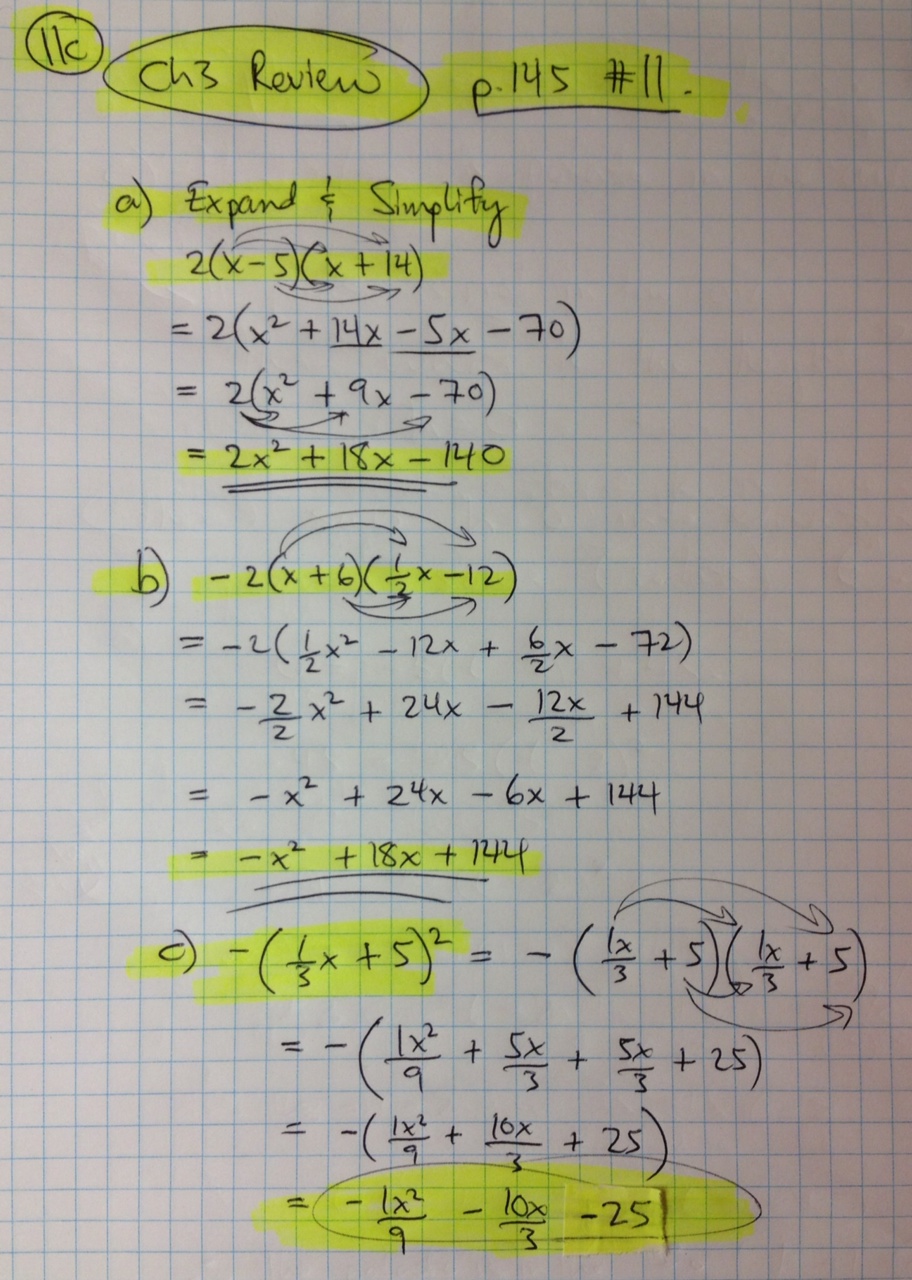 11c
Ch3 Review p.145 #11.
a) Expand & Simplify
2(x-5)(x+14)
= 2(x² + 14x - 5x - 70)
= 2(x² + 9x - 70)
= 2x² + 18x - 140
b) -2(x+6)(1/2x-12)
= -2(1/2x² - 12x + 6/2x - 72)
= -2/2x² + 24x - 12x/2 + 144
= -x² + 24x - 6x + 144
= -x² + 18x + 144
c) -(1/3x + 5)² = -(1x/3 + 5)(1x/3 + 5)
= -(1x²/9 + 5x/3 + 5x/3 + 25)
= -(1x²/9 + 10x/3 + 25)
= -1x²/9 - 10x/3 -25